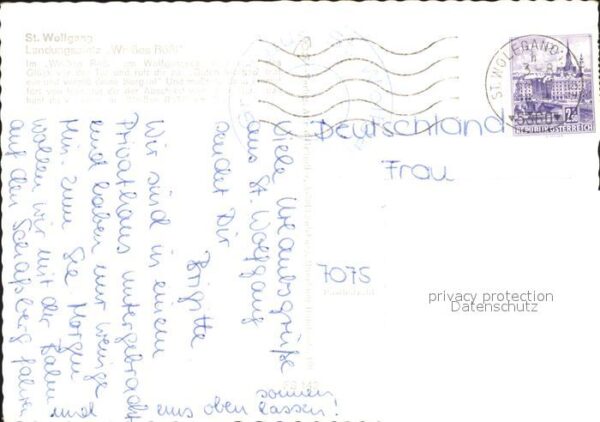 St. Wolfgang
Landungsplatz „Weißes Rößl"
Im „Weißen Rößl" am Wolfgangsee
ST. WOLFGANG
5360
REPUBLIK ÖSTERREICH
Deutschland
Frau
7075
Viele Urlaubsgrüße
aus St. Wolfgang
sendet Dir
Brigitte
Wir sind in einem
Privathaus untergebracht
und haben nur wenige
Min. zum See. Morgen
wollen wir mit der Bahn
auf den Schafsberg fahren
und uns oben sonnen
lassen!
privacy protection
Datenschutz